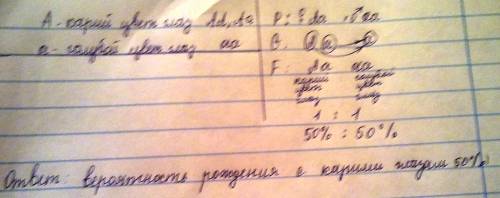 А - карий цвет глаз АА, Аа
а - голубой цвет глаз аа
Р: ♀ Аа ♂ аа
G: А а а
F: Аа аа
карий голубой
цвет цвет
глаз глаз
1 : 1
50% : 50%
Ответ: вероятность рождения с карими глазами 50%